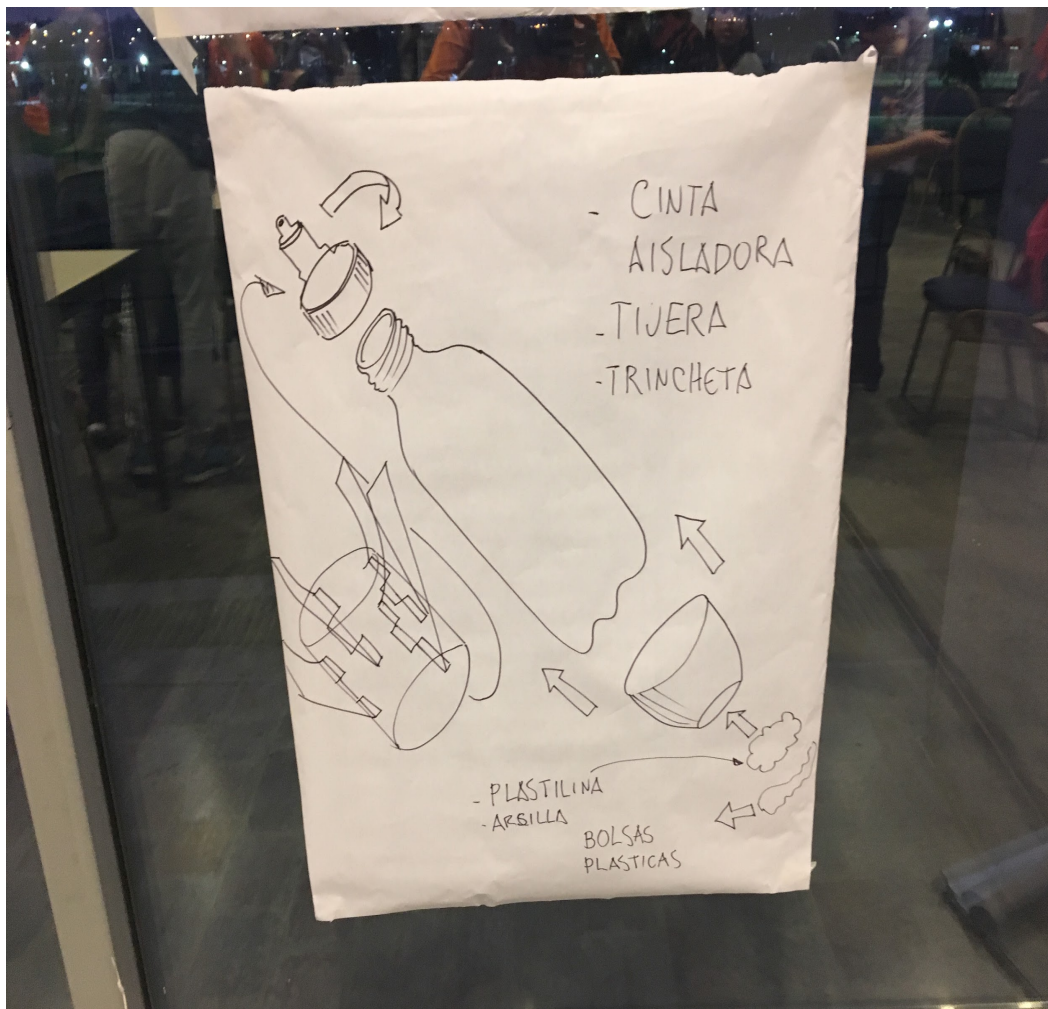 - CINTA
AISLADORA
- TIJERA
- TRINCHETA
- PLASTILINA
- ARSILLA
BOLSAS
PLASTICAS